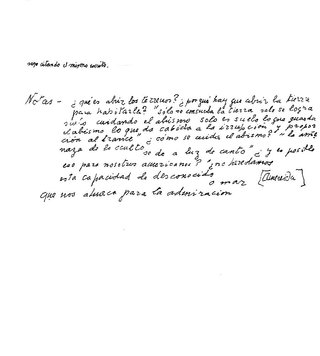 Notas - ¿qué es abrir los terrenos? ¿por qué hay que abrir la tierra
para habitarla? "sólo en consulta la tierra solo se logra
cuidando el abismo solo es suelo lo que guarda
el abismo lo que da cabida a la irrupción y propor
ción al trance" ¿cómo se cuida el abismo? "la ame
naza de lo oculto se da a luz de canto" ¿y es posible
eso para nosotros americanos? ¿no heredamos
esta capacidad de desconocido
o mar [amereida]
que nos abraza para la admiración